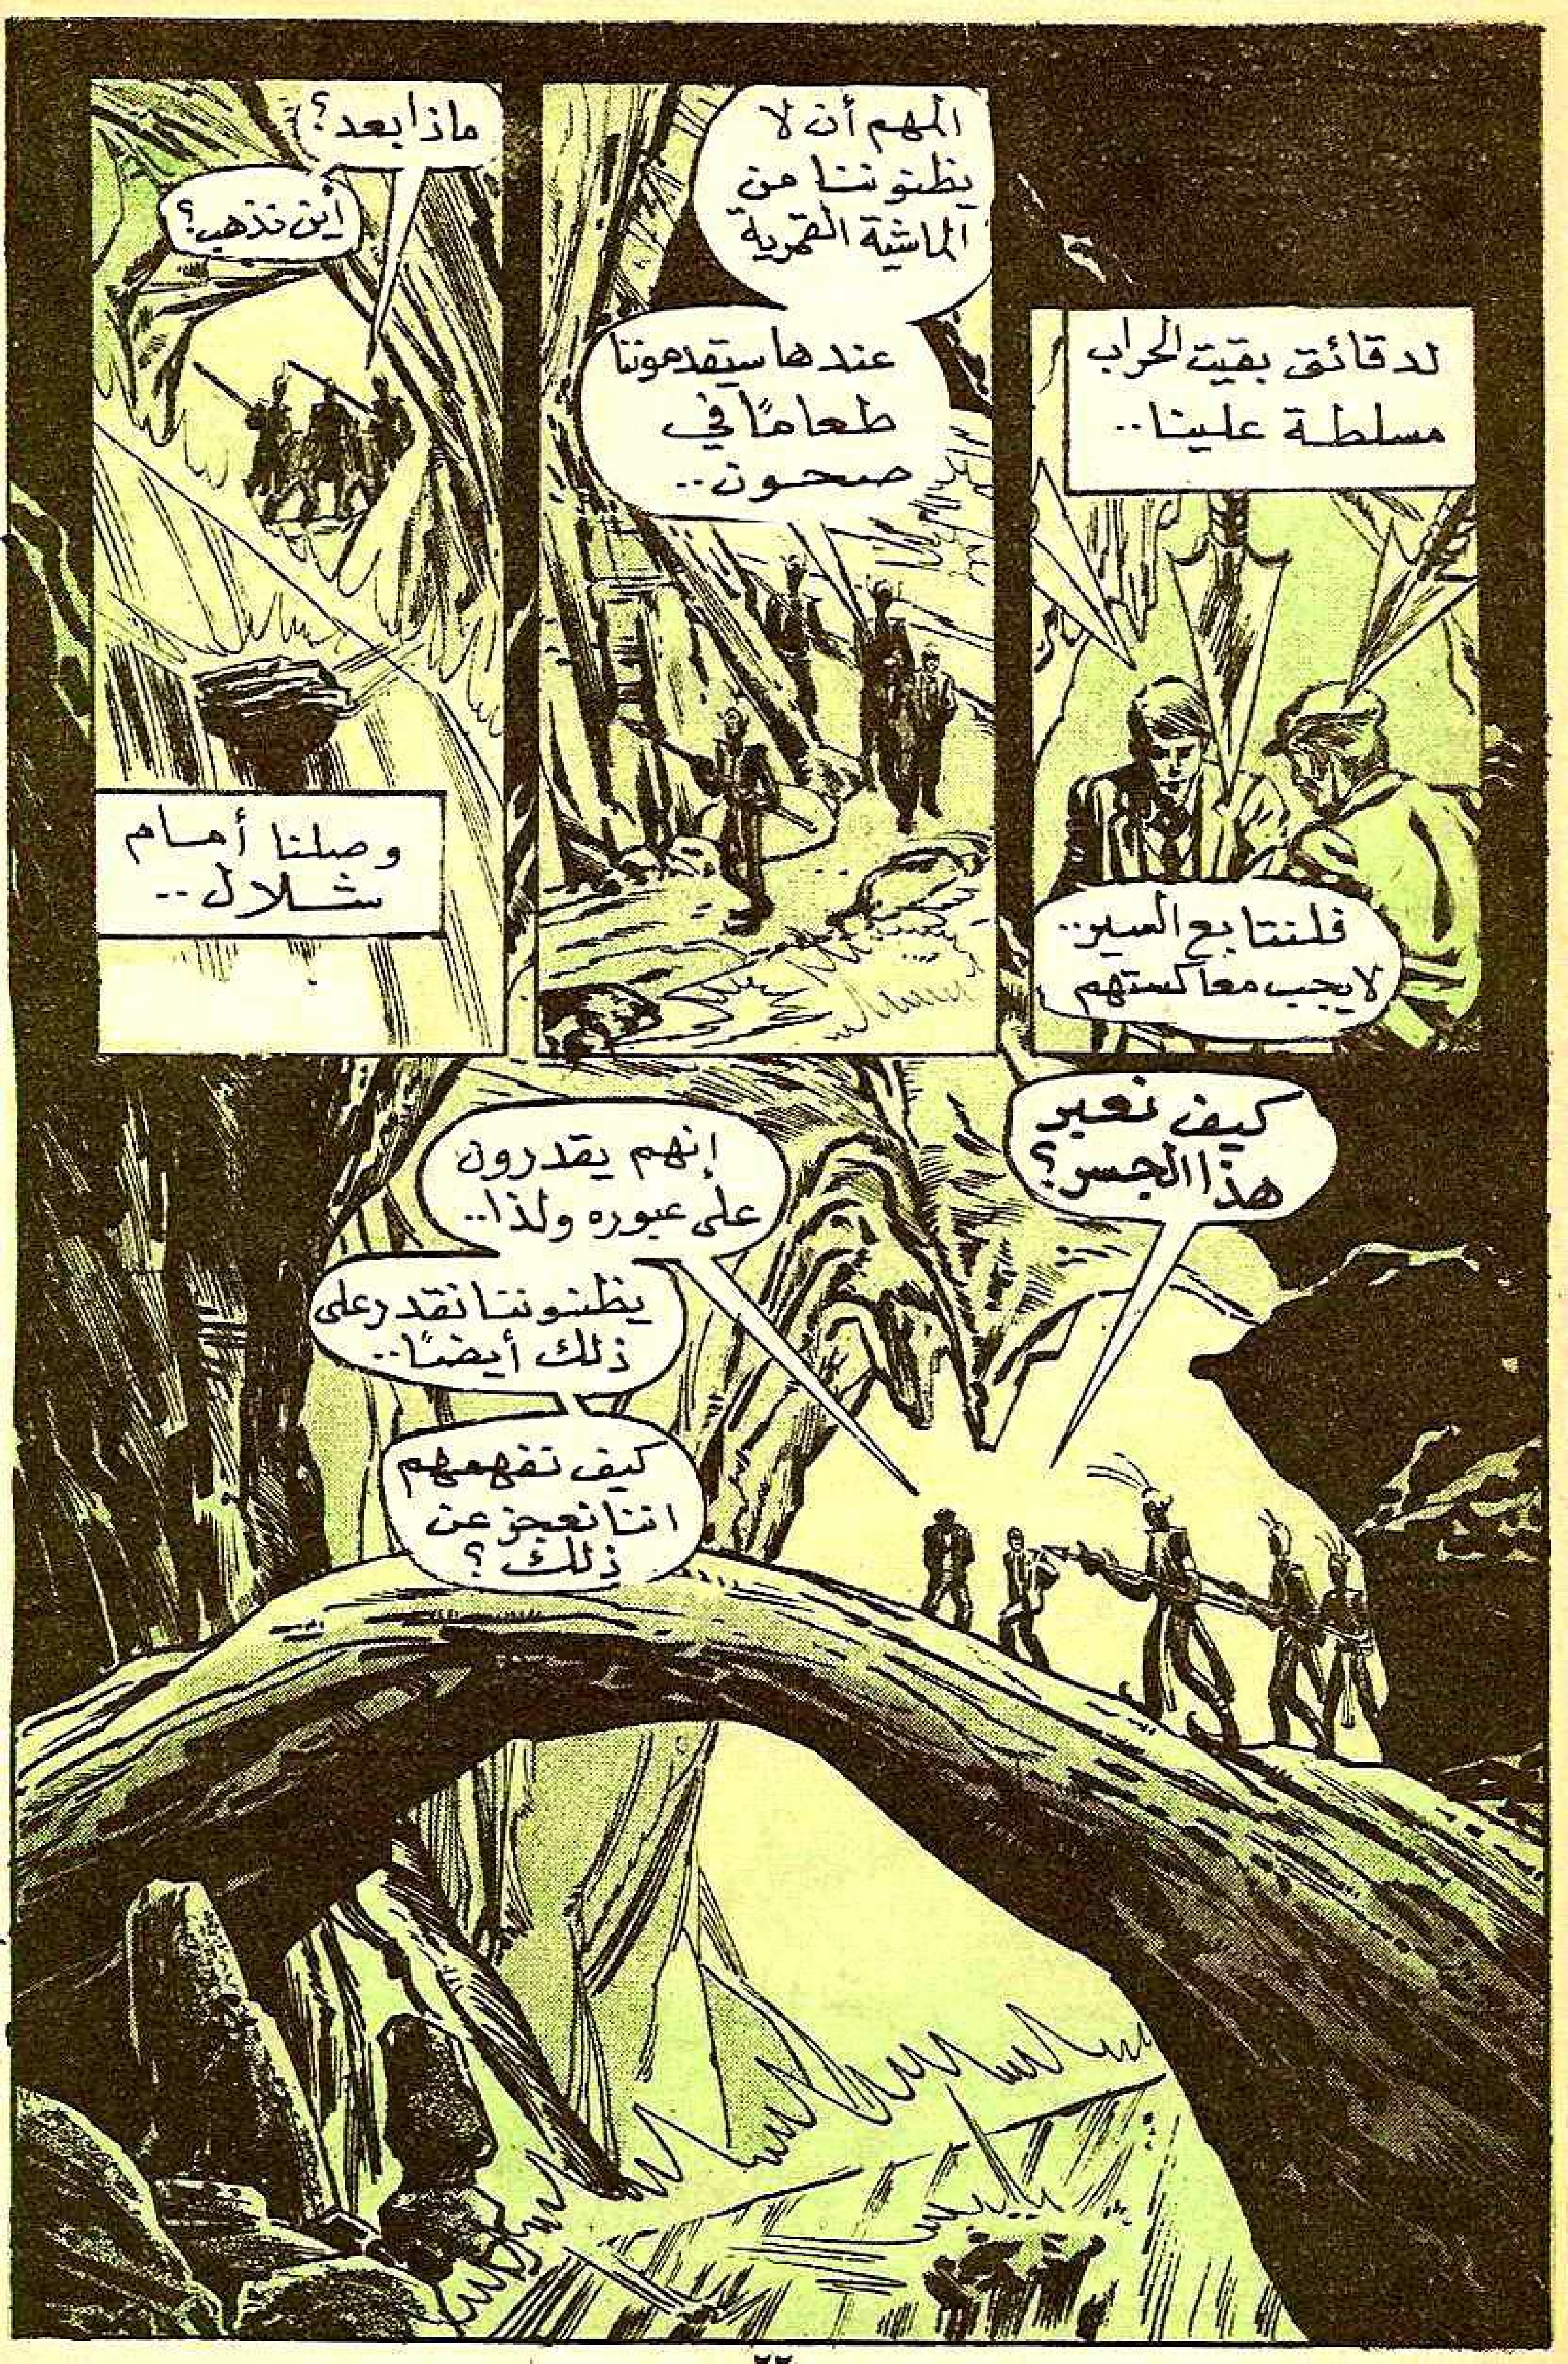 لدقائق بقيت الحراب
مسلطة علينا..
فلنتابع السير..
لا يجب معاكستهم
المهم أن لا
يظنوننا من
الماشية القمرية
عندها سيقدموننا
طعامًا في
صحون..
ماذا بعد؟
أين نذهب؟
وصلنا أمام
شلال..
كيف نعبر
هذا الجسر؟
إنهم يقدرون
على عبوره ولذا..
يظنوننا نقدر على
ذلك أيضًا..
كيف نفهمهم
اننا نعجز عن
ذلك؟